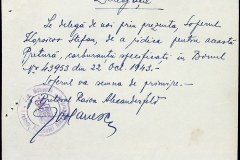 Delegație
Se delegă de noi prin prezenta, Șoferul
Stefan, de a ridica pentru această
Pretură, carburanți specificati în Bonul
No 43953 din 22 Oct 1943.-
Șoferul va semna de primire.-
Pretorul Raion Alexanderfeld